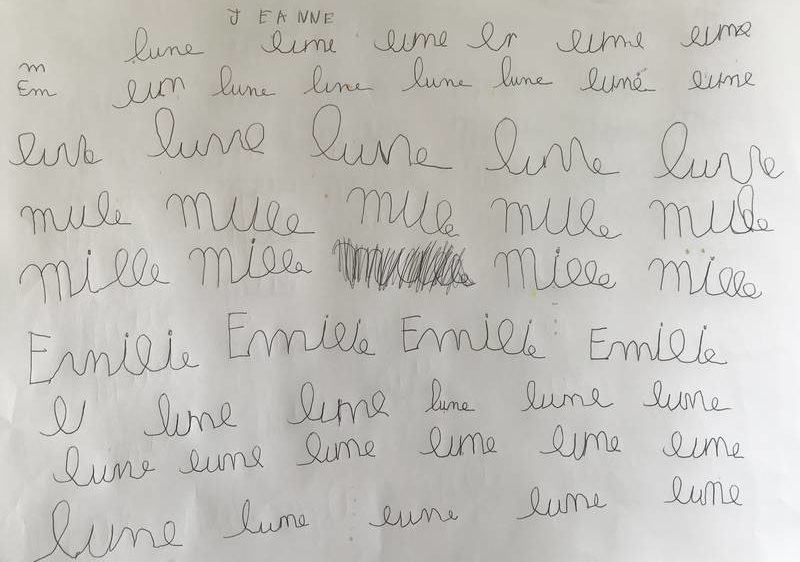 JEANNE
lune lime lime er lime lime
m
Em eun lune lune lune lune luné lune
lune lune lune lune lune
mule mulle mule mule mule
mille mille mille mille
Emilie Emilie Emilie Emilie
l lume lime lune lume lune
lune lune lime lime lime lime
lune lune lune lune lune